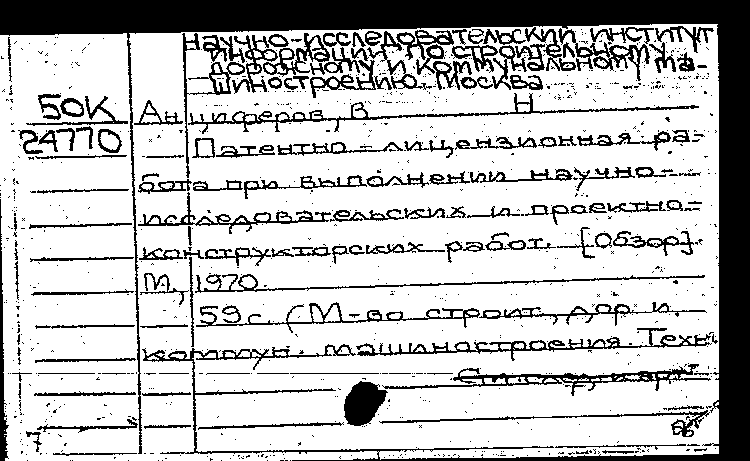 Научно-исследовательский институт
информации по строительному,
дорожному и коммунальному ма-
шиностроению. Москва.
50К Анциферов, В Н
24770 Патентно-лицензионная ра-
бота при выполнении научно-
исследовательских и проектно-
конструкторских работ. [Обзор].
М., 1970.
59 с. (М-во строит., дор. и
коммун. машиностроения. Техн